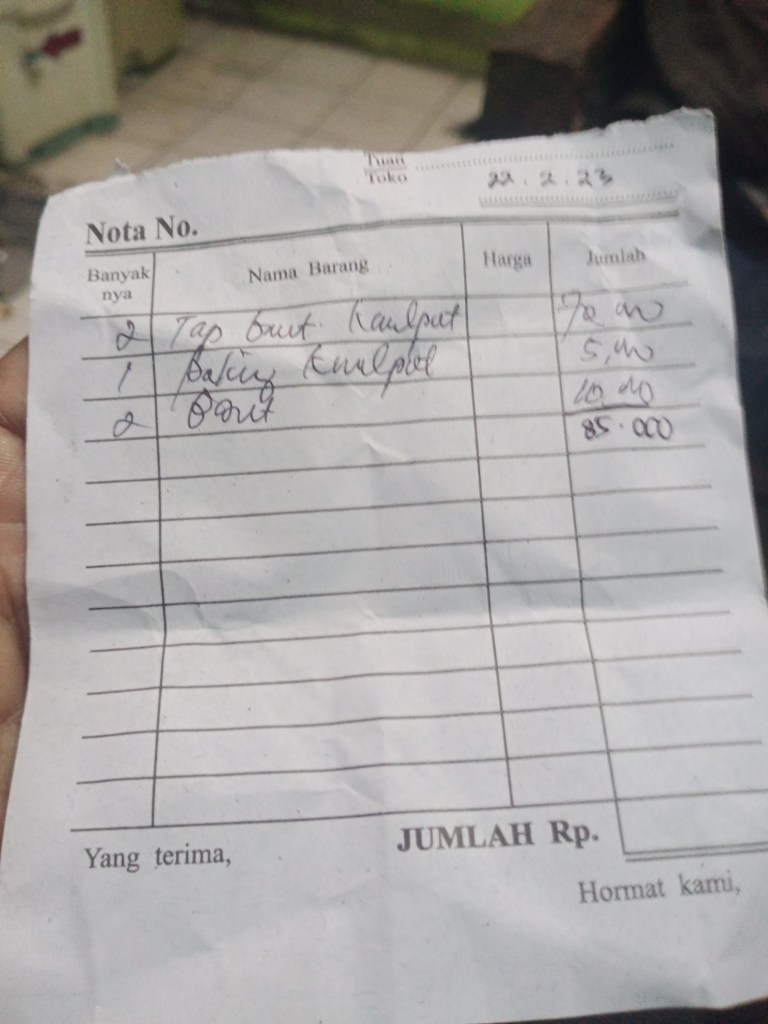 Tuan
Toko
22.2.23
Nota No.
Banyak nya Nama Barang Harga Jumlah
2 Tap baut Knalpot 70.00
1 Paking Knalpot 5,00
2 Baut 10.00
85.000
JUMLAH Rp.
Yang terima,
Hormat kami,